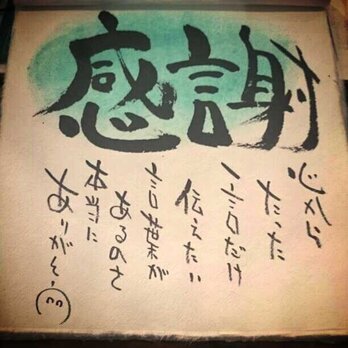 感謝
心から
たった
一言だけ
伝えたい
言葉が
あるのさ
本当に
ありがとう